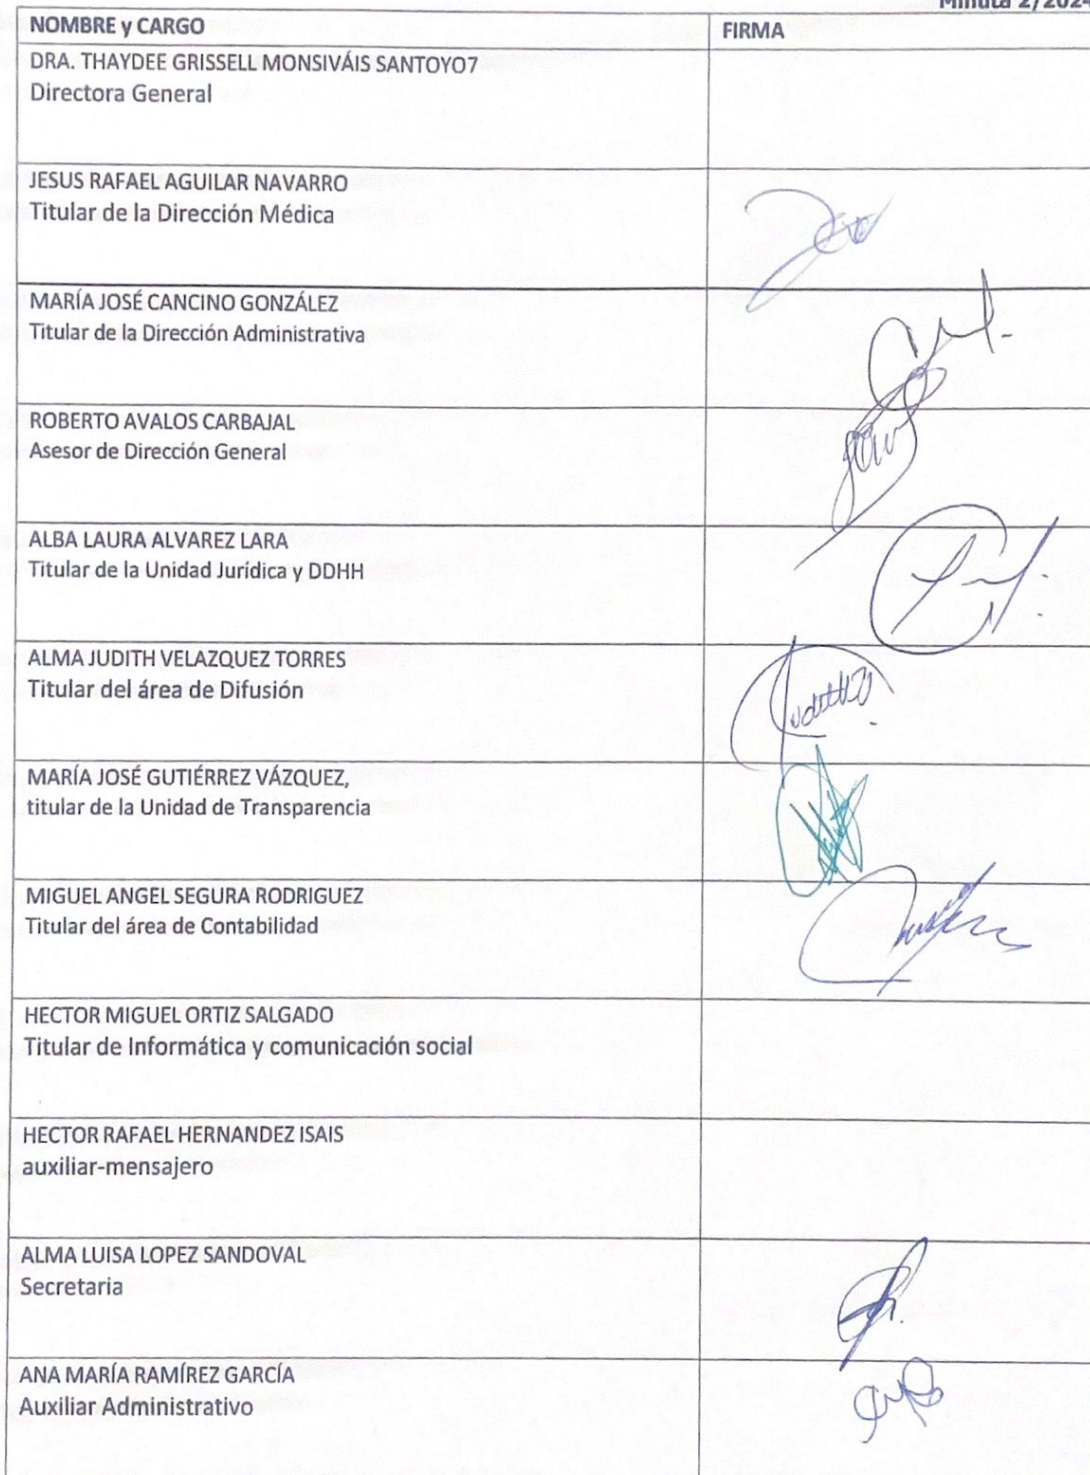 Minuta 2/2024
NOMBRE y CARGO
FIRMA
DRA. THAYDEE GRISSELL MONSIVÁIS SANTOYO7
Directora General
JESUS RAFAEL AGUILAR NAVARRO
Titular de la Dirección Médica
MARÍA JOSÉ CANCINO GONZÁLEZ
Titular de la Dirección Administrativa
ROBERTO AVALOS CARBAJAL
Asesor de Dirección General
ALBA LAURA ALVAREZ LARA
Titular de la Unidad Jurídica y DDHH
ALMA JUDITH VELAZQUEZ TORRES
Titular del área de Difusión
MARÍA JOSÉ GUTIÉRREZ VÁZQUEZ,
titular de la Unidad de Transparencia
MIGUEL ANGEL SEGURA RODRIGUEZ
Titular del área de Contabilidad
HECTOR MIGUEL ORTIZ SALGADO
Titular de Informática y comunicación social
HECTOR RAFAEL HERNANDEZ ISAIS
auxiliar-mensajero
ALMA LUISA LOPEZ SANDOVAL
Secretaria
ANA MARÍA RAMÍREZ GARCÍA
Auxiliar Administrativo